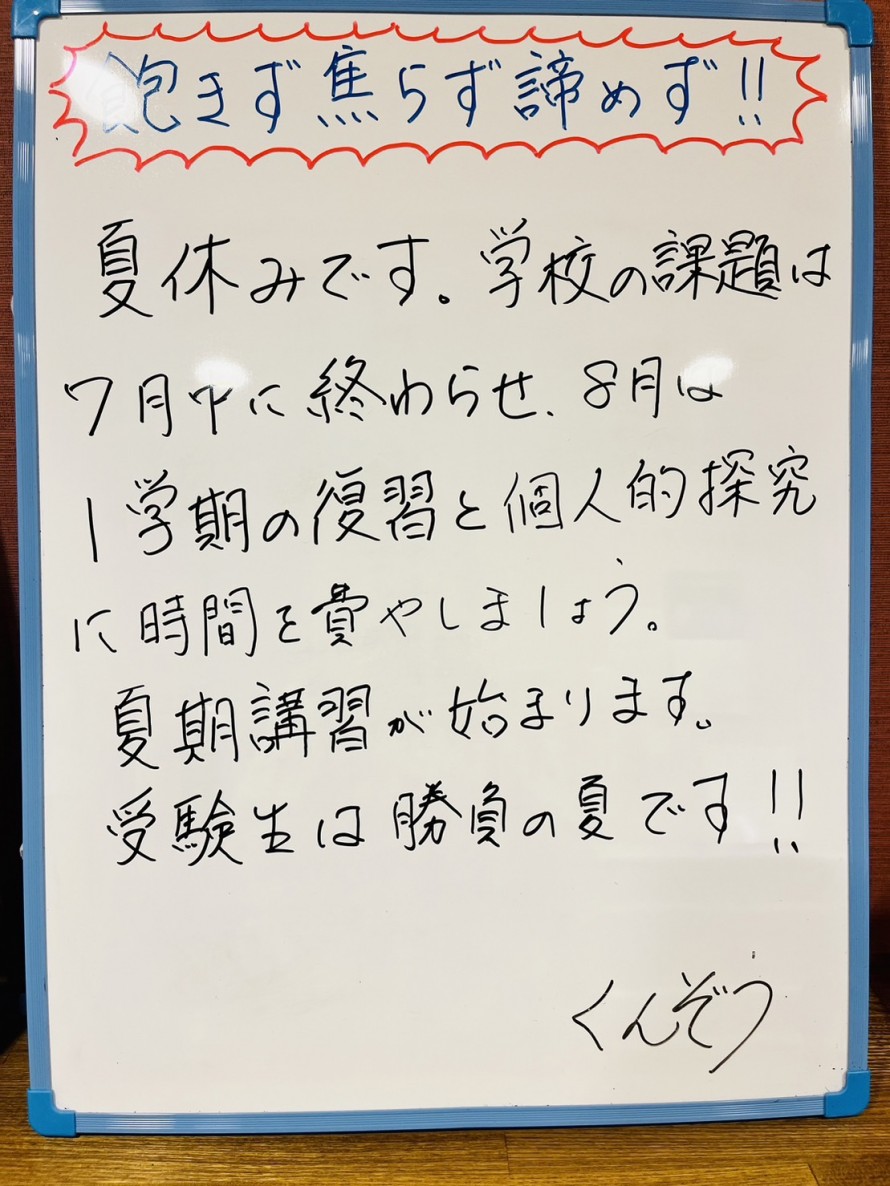 飽きず焦らず諦めず!!
夏休みです。学校の課題は
7月中に終わらせ、8月は
1学期の復習と個人的探究
に時間を費やしましょう。
夏期講習が始まります。
受験生は勝負の夏です!!
くんぞう